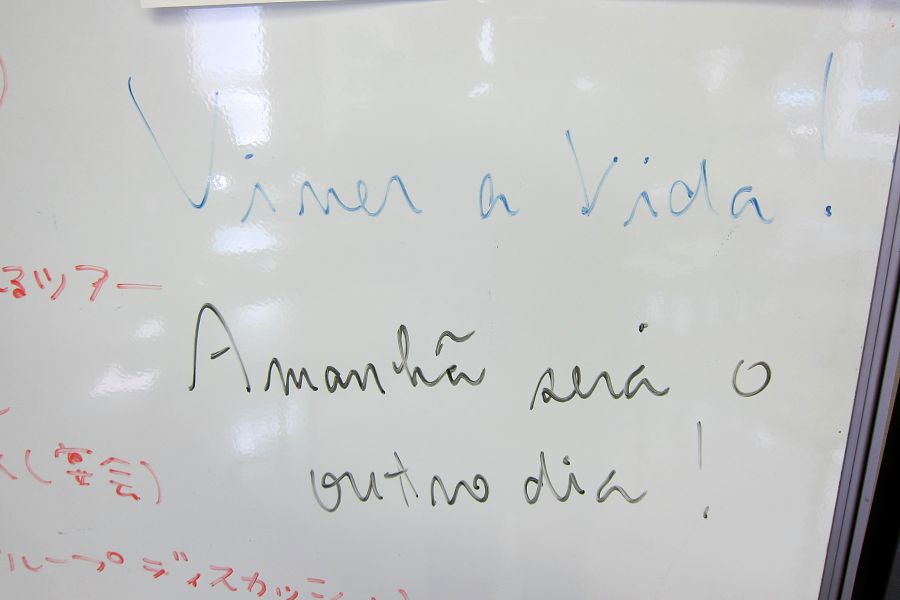 Viver a Vida!
るツアー
Amanhã será o
(宴会)
outro dia!
ループディスカッション)